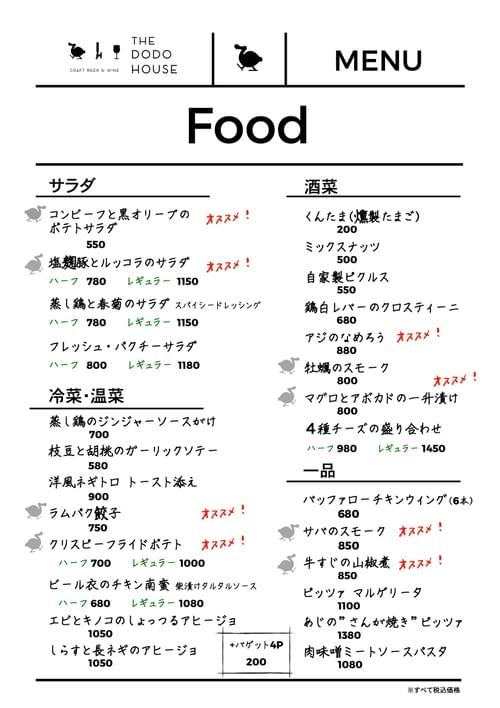 THE
DODO
HOUSE
CRAFT BEER & WINE
MENU
Food
サラダ
コンビーフと黒オリーブの
ポテトサラダ
オススメ！
550
塩麹豚とルッコラのサラダ
オススメ！
ハーフ 780 レギュラー 1150
蒸し鶏と春菊のサラダ スパイシードレッシング
ハーフ 780 レギュラー 1150
フレッシュ・パクチーサラダ
ハーフ 800 レギュラー 1180
冷菜・温菜
蒸し鶏のジンジャーソースがけ
700
枝豆と胡桃のガーリックソテー
580
洋風ネギトロ トースト添え
900
ラムパク餃子 オススメ！
750
クリスピーフライドポテト オススメ！
ハーフ 700 レギュラー 1000
ビール衣のチキン南蛮 柴漬けタルタルソース
ハーフ 680 レギュラー 1080
エビとキノコのしょっつるアヒージョ
1050
しらすと長ネギのアヒージョ
1050
+バゲット4P
200
酒菜
くんたま(燻製たまご)
200
ミックスナッツ
500
自家製ピクルス
550
鶏白レバーのクロスティーニ
680
アジのなめろう オススメ！
880
牡蠣のスモーク
800
オススメ！
マグロとアボカドの一升漬け
800
4種チーズの盛り合わせ
ハーフ 980 レギュラー 1450
一品
バッファローチキンウィング(6本)
680
サバのスモーク オススメ！
850
牛すじの山椒煮 オススメ！
850
ピッツァ マルゲリータ
1100
あじの”さんが焼き”ピッツァ
1380
肉味噌ミートソースパスタ
1080
※すべて税込価格